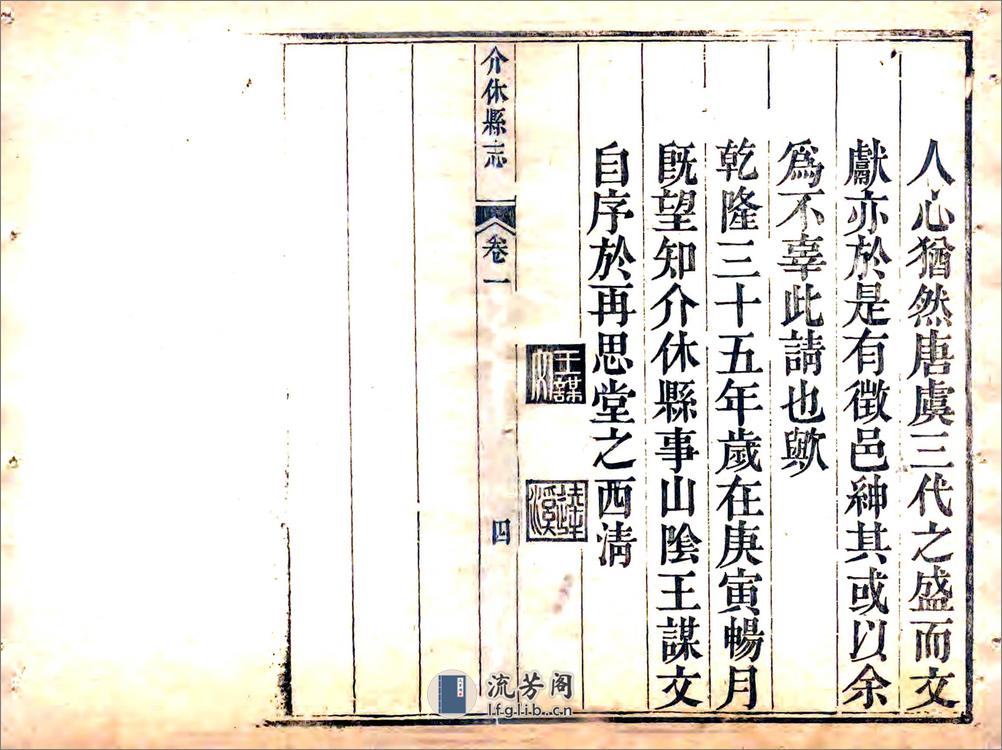 人心猶然唐虞三代之盛而文
獻亦於是有徵邑紳其或以余
為不辜此請也歟
乾隆三十五年歲在庚寅暢月
既望知介休縣事山陰王謀文
自序於再思堂之西清
王謀文
達溪
介休縣志
卷一
四
流芳阁
lfglib.cn